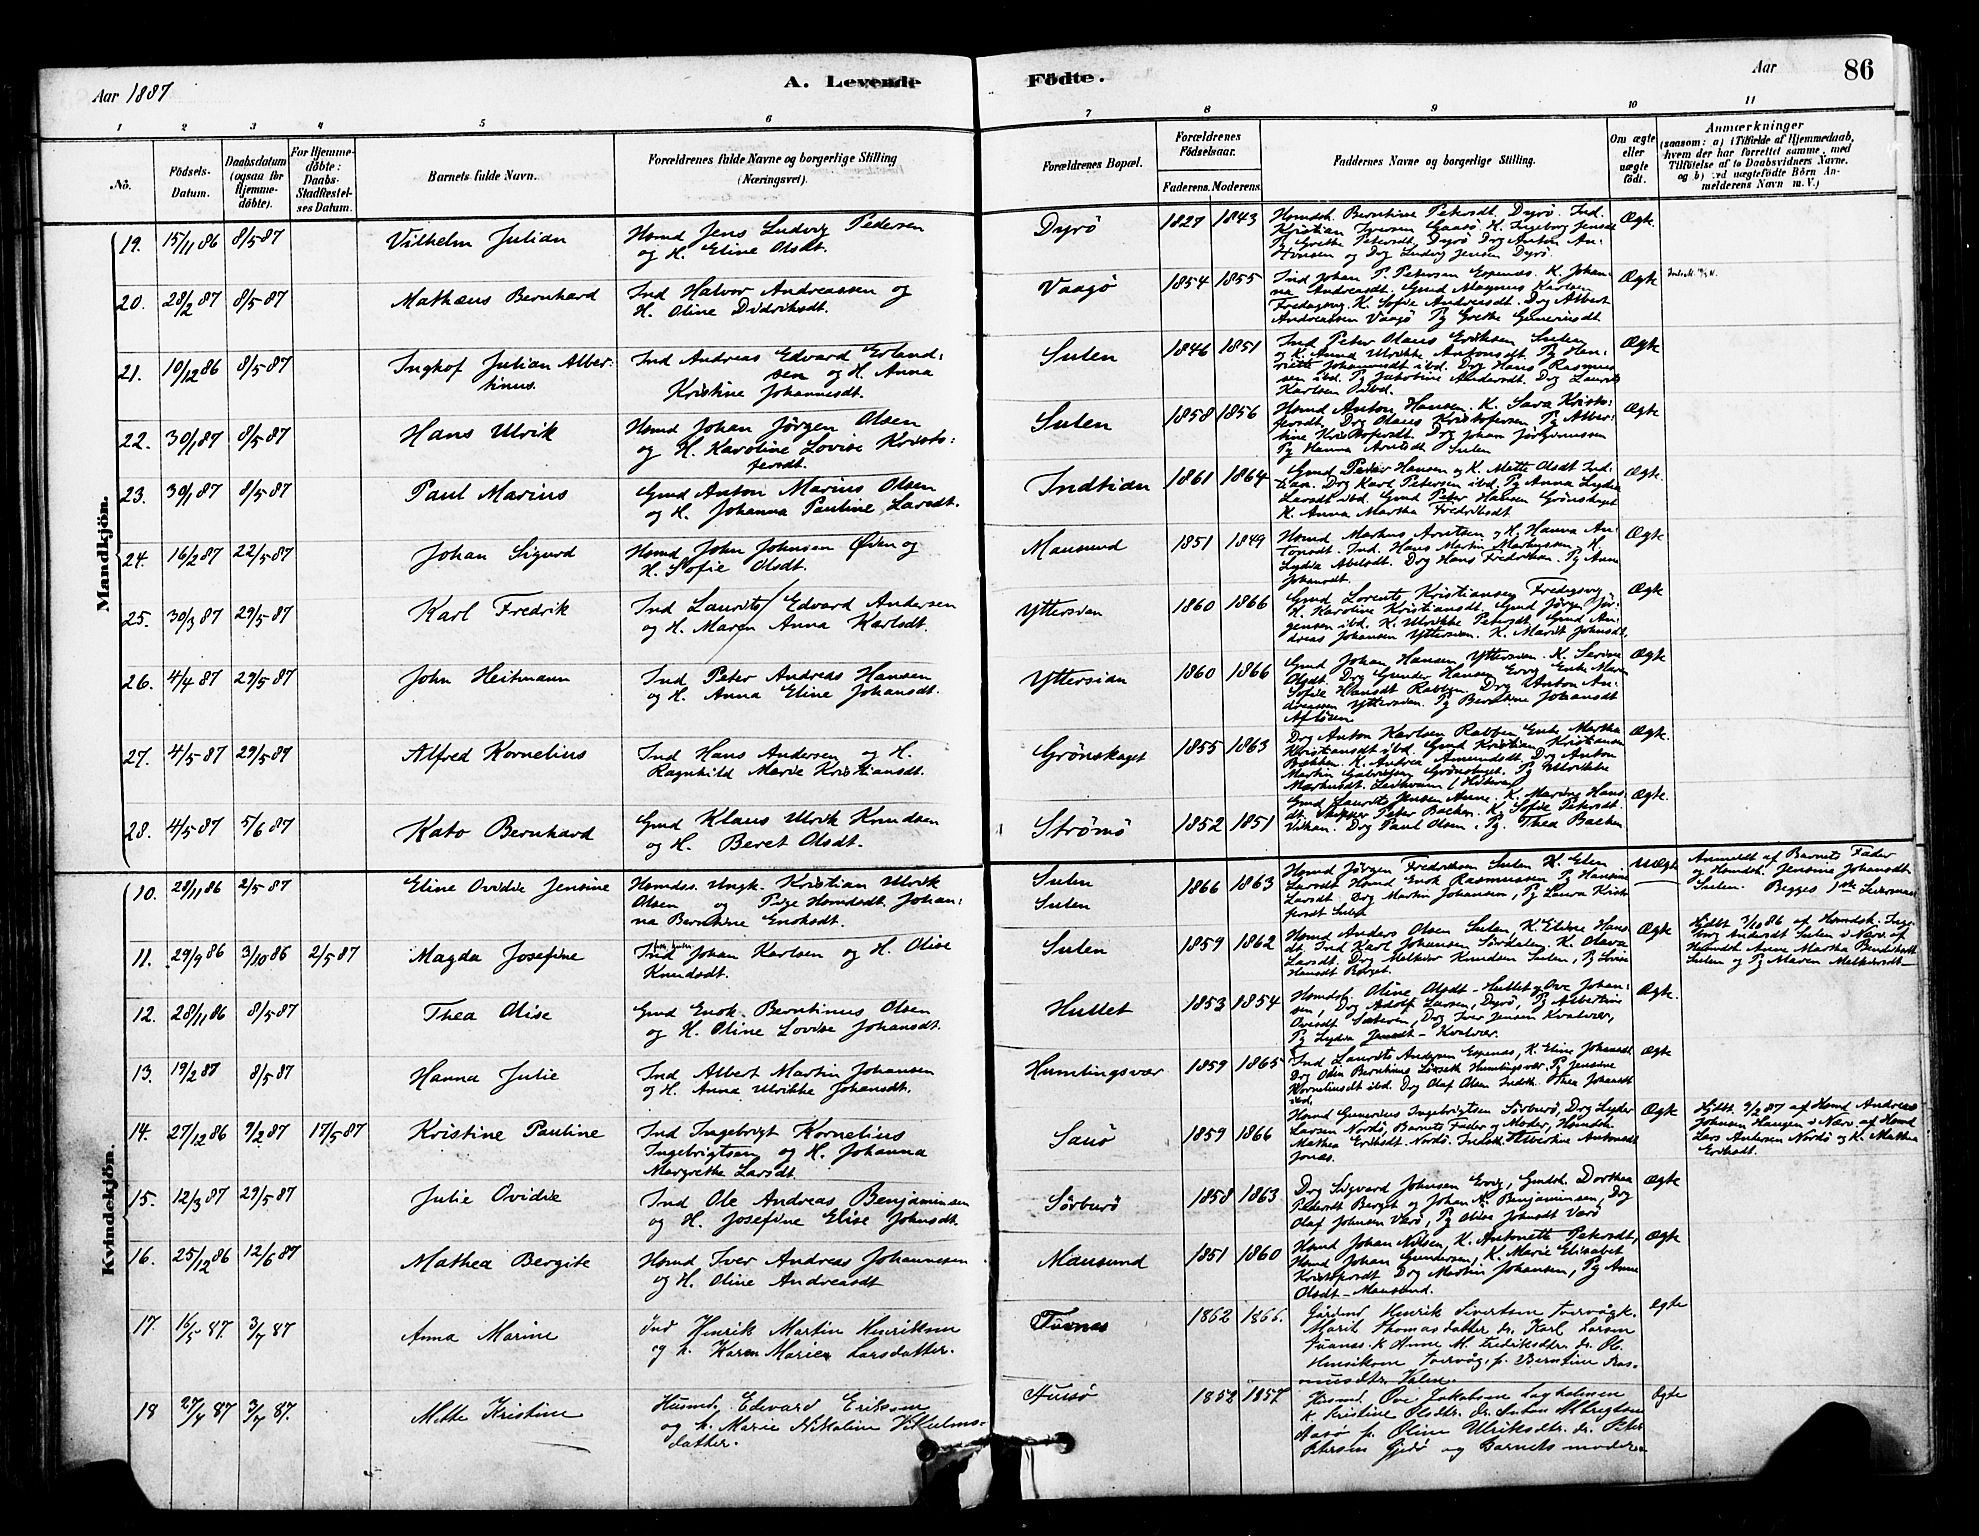 Aar 1887
A. Levende Födte.
Aar
86
1 2 3 4 5 6 7 8 9 10 11
No.
Födsels-Datum.
Daabsdatum (ogsaa for Hjemme-döbte).
For Hjemme-döbte: Daabs-Stadfæstel-ses Datum.
Barnets fulde Navn.
Forældrenes fulde Navne og borgerlige Stilling (Næringsvei).
Forældrenes Bopæl.
Forældrenes Födselsaar.
Faderens. Moderens.
Faddernes Navne og borgerlige Stilling.
Om ægte eller uægte födt.
Anmærkninger
(saasom: a) i Tilfælde af Hjemmedaab, hvem der har forrettet samme, med Tilföielse af to Daabsvidners Navne, og b) ved uægtefödte Börn Anmelderens Navn m. V.)
Mandkjön.
19. 15/11 86 8/5 87 Vilhelm Julian
Hsmd Jens Ludvig Pedersen
og H. Eline Olsdt.
Dyrö 1827 1843
Hsmdsh. Berntine Petersdt. Dyrö. Ind.
Ægte.
20. 28/2 87 8/5 87 Mathæus Bernhard
Ind Halvor Andreassen og
H. Oline Didriksdt.
Vaagö 1854 1855
Ind Johan P. Petersen Espenæs. K. Johan-
na Andreasdt. Gmd Magnus Karlsen
Fredagsvg. K. Sofie Andreasdt. Drg Albert
Andreassen Vaagö Pg Grethe
Ægte
21. 10/12 86 8/5 87 Julian Alber-
tinus.
Ind Andreas Edvard Erland-
sen og H. Anna
Kristine Johannesdt.
Sulen 1846 1851
Ind Peter Olaus Eriksen Sulen
og K. Anna Ulrikke Antonsdt. Pg Hen-
riette Johannesdt ibd. Drg Hans Rasmus
sen ibd. Pg Jakobine Andersdt. Drg Laurits
Karlsen ibd.
Ægte
22. 30/1 87 8/5 87 Hans Ulrik
Hsmd Johan Jörgen Olsen
og H. Karoline Lovise Kristo-
fersdt.
Sulen 1858 1856
Hsmd Anton Hansen. K. Sara Kristo-
fersdt. Drg Olaus Kristofersen Pg Alber-
tine Kristofersdt. Drg Johan
Pg Hanna Arntsdt Sulen
Ægte
23. 30/1 87 8/5 87 Paul Marius
Gmd Anton Marius Olsen
og H. Johanna Pauline Larsdt.
Indtian 1861 1864
Gmd Peder Hansen og K. Mette Olsdt Ind-
tian. Drg Karl Petersen ibd. Pg Anna Lydia
Larsdt ibd. Gmd Peter Hansen Grönskaget
K. Anna Martha Fredriksdt
Ægte.
24. 16/2 87 22/5 87 Johan Sigurd
Hsmd John Johnsen Öien og
H. Sofie Olsdt.
Mausund 1851 1849
Hsmd Markus Arntsen og H. Hanna An-
tonsdt. Ind. Hans Martin Markussen H.
Lydia Abelsdt. Drg Hans Fredriksen. Pg Anne
Johansdt.
Ægte
25. 30/3 87 29/5 87 Karl Fredrik
Ind Laurits Edvard Andersen
og H. Maren Anna Karlsdt.
Yttersian 1860 1866
Gmd Lorents Kristiansen Fredagsvg
H. Karoline Kristiansdt. Gmd Jörgen Jör-
gensen ibd. K. Ulrikke Petersdt. Gmd An-
dreas Johansen Yttersian. K. Marit Johnsdt.
Ægte
26. 4/4 87 29/5 87 John Heitmann
Ind Peter Andreas Hansen
og H. Anna Eline Johansdt.
Yttersian 1860 1866
Gmd Johan Hansen Yttersian. K. Serine
Olsdt. Drg Gunder Hansen Ervg Enke Maren
Sofie Hansdt Rabben. Drg Anton An-
dreassen Yttersian. Pg Berntine Johansdt
Ægte
27. 4/5 87 29/5 87 Alfred Kornelius
Ind Hans Andersen og H.
Ragnhild Marie Kristiansdt.
Grönskaget 1855 1863
Drg Anton Karlsen Rabben, Enke Martha
Kristiansdt ibd. Gmd Kristian Kristiansen
Bekken. K. Andrea Amundsdt. Drg Anton
Martin Gabrielsen Grönskaget. Pg Ulrikke
Markusdt.
Ægte.
28. 4/5 87 5/6 87 Kato Bernhard
Gmd Klaus Ulrik Knudsen
og H. Beret Olsdt.
Strömö 1852 1851
Gmd Laurits Jensen Aune. K. Marine Hans-
dt. Skipper Peter Bachen. K. Sofie Petersdt.
Vikan. Drg Paul Olsen, Pg. Thea Bachen
Ægte.
Kvindekjön.
10. 28/11 86 2/5 87 Eline Ovidie Jensine
Hsmdss. Ungk. Kristian Ulrik
Olsen og Pige Hsmdsdt. Johan-
na Berntine Enoksdt.
Sulen
Sulen
1866 1863
Hsmd Jörgen Fredriksen Sulen K. Elen
Larsdt Hsmd Enok Rasmussen, Pg Hansine
Larsdt, Drg Martin Johansen, Pg Laura Krist
fersdt Sulen
Uægte
Anmeldt af Barnets Fader
og Hsmdsh. Jensine Johansdt
Sulen. Begges 1ste Leiermaal
11. 29/9 86 3/10 86 2/5 87 Magda Josefine
Ind Johan Karlsen og H. Olise
Knudsdt.
Sulen 1859 1862
Hsmd Anders Olsen Sulen, K. Eline Hans-
dt. Ind Karl Johansen Sördalen, K. Olava
Larsdt. Drg Melkior Knudsen Sulen, Pg Lovise
Hansdt Borget.
Ægte
Hjdbt. 3/10 86 af Hsmdsk. Inge-
borg Andersdt Sulen i Nærv. af
Hsmdsh Anne Martha
Sulen og Pg Maren Melkiorsdt
12. 28/11 86 8/5 87 Thea Olise
Gmd Enok Berntinus Olsen
og H. Oline Lovise Johansdt.
Hullet 1853 1854
Hsmdsk. Oline Olsdt - Hullet, Ove Johan-
sen, Drg Adolf Larsen, Dyrö, Pg Albertine
Ovesdt Sætren, Drg Iver Jensen Kvalvær,
Pg Lydia Jensdt - Kvalvær.
Ægte.
13. 19/2 87 8/5 87 Hanna Julie
Ind Albert Martin Johansen
og H. Anna Ulrikke Johansdt.
Humlingsvær 1859 1865
Ind Laurits Andersen Espenæs, K. Eline Johansdt
Drg Odin Berntinus Humlingsvær, Pg Jensine
Korneliusdt ibd. Drg Olaf Olsen Indth. Thea Johansdt
ibd.
Ægte
14. 27/12 86 9/2 87 17/5 87 Kristine Pauline
Ind Ingebrigt Kornelius
Ingebrigtsen og H. Johanna
Margrethe Larsdt.
Sauö 1859 1866
Hsmd Gunerius Ingebrigtsen Sörburö, Drg Lyder
Larsen Nordö, Barnets Fader og Moder, Hsmdsh.
Mathea Eriksdt. Nordö. Indsth. Albertine Antonsdt
Jonas.
Ægte
Hjdbt. 9/2 87 af Hsmd Andreas
Johnsen Haugen i Nærv. af Hsmd
Lars Andersen Nordö og K. Mathea
Eriksdt.
15. 12/3 87 29/5 87 Julie Ovidie
Ind Ole Andreas Benjaminsen
og H. Josefine Elise Johnsdt.
Sörburö 1858 1863
Drg Sigvard Johnsen Ervg, Gmdsh. Dorthea
Pedersdt Berget og Johan A. Benjaminsen, Drg
Olaf Johnsen Værö, Pg Olise Johnsdt Værö
Ægte
16. 25/12 86 12/6 87 Mathea Bergite
Hsmd Iver Andreas Johannesen
og H. Oline Andreasdt
Mausund 1851 1860
Hsmd Johan Nilsen, K. Antonette Petersdt,
Hsmd Johan Gundersen, K. Marie Elisabet
Kristofersdt Drg Martin Johansen, Pg Anne
Olsdt - Mausund.
Ægte
17. 16/5 87. 3/7 87 Anna Marine
Ind Henrik Martin Henriksen
og h. Karen Marie Larsdatter.
Tuenæs 1862 1866.
Gårdmd Henrik Sivertsen
Marit Thomasdatter dr. Karl Larsen
Tuanæs. k Anne M. Fredriksdtr. dr. Ol.
Henriksen p. Berntine Ras-
musdtr Valen.
egte
18 27/4 87 3/7 87. Mette Kristine
Husmd. Edevard Eriksen
og h. Marie Nikoline Vilhelms-
datter.
Husö 1852 1857
Husmd Ove Jakobsen
k. Kristine Olsdtr. dr. Anton
p. Oline Ulriksdtr. dr. Peter
Petersen Gjedö og Barnets moder.
Egte